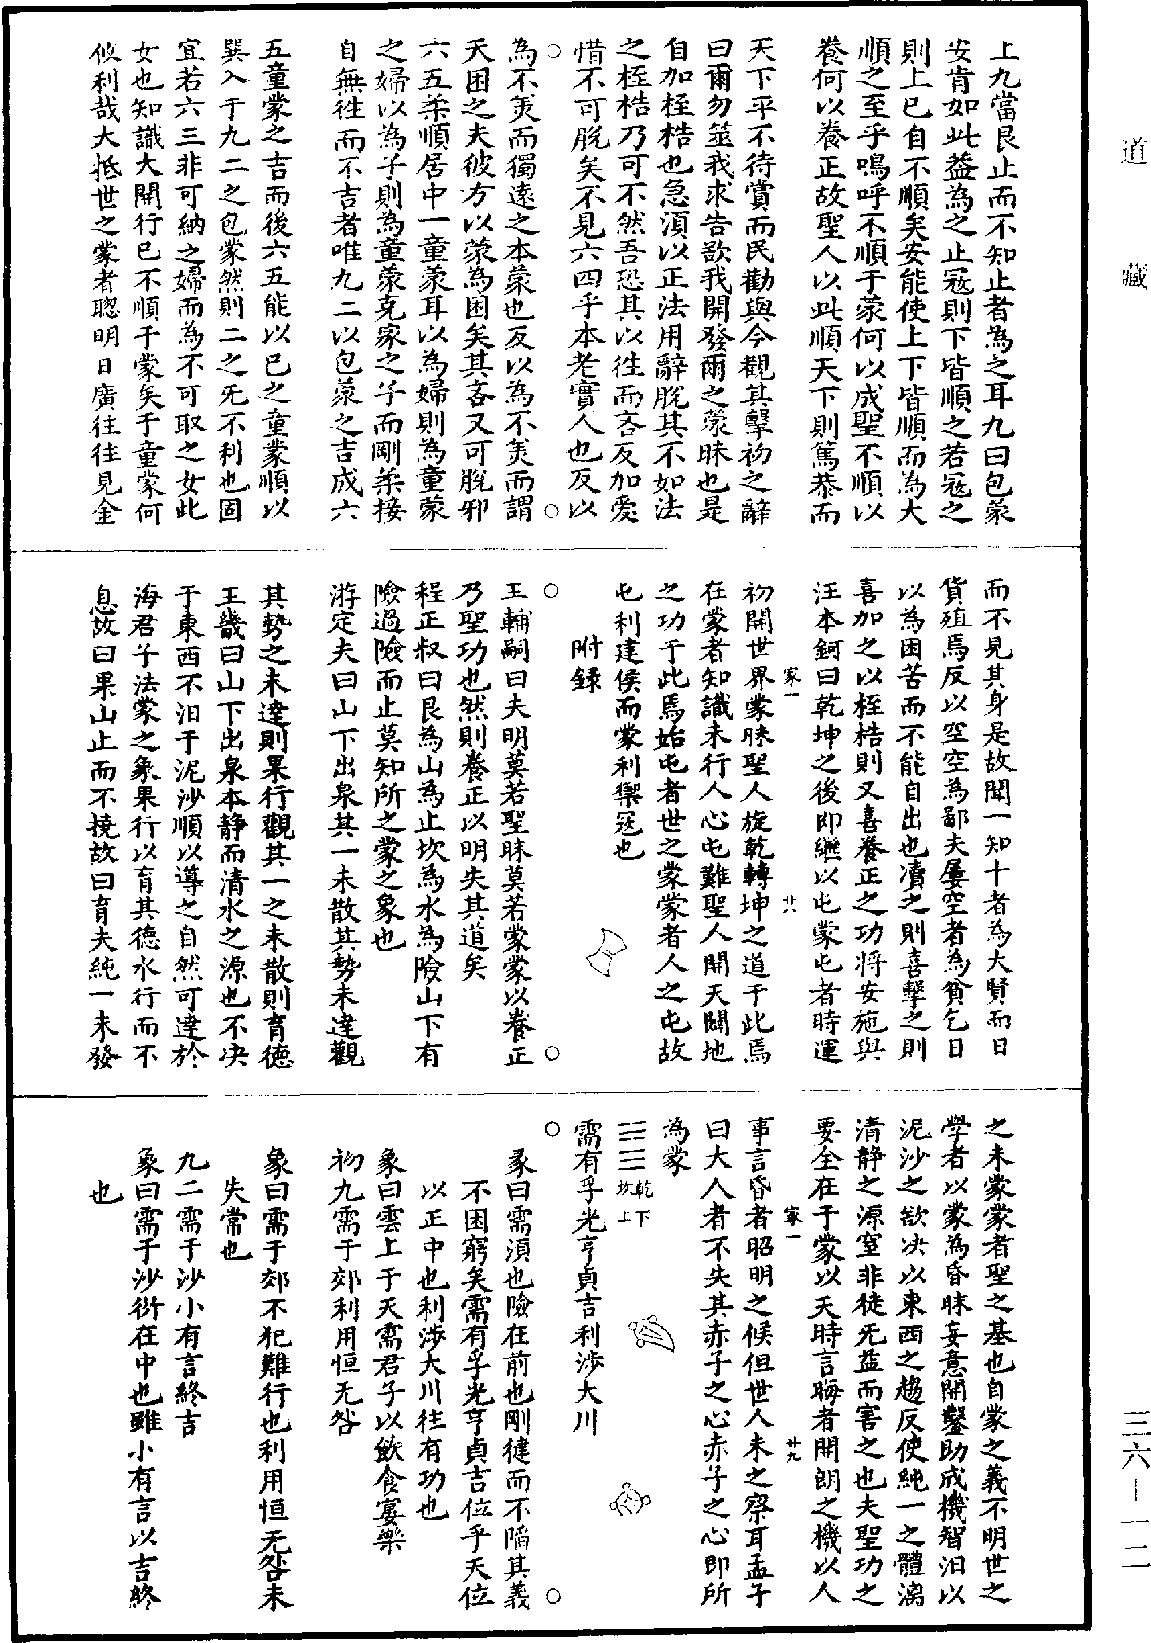 道藏
三六—一二
上九當艮止而不知止者為之耳九曰包蒙
安肯如此益為之止寇則下皆順之若寇之
則上已自不順矣安能使上下皆順而為大
順之至乎嗚呼不順于蒙何以成聖不順以
養何以養正故聖人以此順天下則篤恭而
天下平不待賞而民勸與今觀其擊初之辭
曰爾勿筮我求告欲我開發爾之蒙昧也是
自加桎梏也急須以正法用辭脫其不如法
之桎梏乃可不然吾恐其以往而吝反加愛
惜不可脫矣不見六四乎本老實人也反以
為不美而獨遠之本蒙也反以為不美而謂
天困之夫彼方以蒙為困矣其吝又可脫邪
六五柔順居中一童蒙耳以為婦則為童蒙
之婦以為子則為童蒙克家之子而剛柔接
自無往而不吉者唯九二以包蒙之吉成六
五童蒙之吉而後六五能以已之童蒙順以
巽入于九二之包蒙然則二之旡不利也固
宜若六三非可納之婦而為不可取之女此
女也知識大開行已不順于蒙矣于童蒙何
攸利哉大抵世之蒙者聰明日廣往往見金
而不見其身是故聞一知十者為大賢而日
貨殖焉反以空空為鄙夫屢空者為貧乞日
以為困苦而不能自出也瀆之則喜擊之則
喜加之以桎梏則又喜養正之功將安施與
汪本鈳曰乾坤之後即繼以屯蒙屯者時運
家一 廿八
初開世界蒙昧聖人旋乾轉坤之道于此焉
在蒙者知識未行人心屯難聖人開天闢地
之功于此焉始屯者世之蒙蒙者人之屯故
屯利建侯而蒙利禦寇也
附錄
王輔嗣曰夫明莫若聖昧莫若蒙蒙以養正
乃聖功也然則養正以明失其道矣
程正叔曰艮為山為止坎為水為險山下有
險過險而止莫知所之蒙之象也
游定夫曰山下出泉其一未散其勢未達觀
其勢之未達則果行觀其一之未散則育德
王畿曰山下出泉本靜而清水之源也不決
于東西不汩于泥沙順以導之自然可達於
海君子法蒙之象果行以育其德水行而不
息故曰果山止而不撓故曰育夫純一未發
之未蒙蒙者聖之基也自蒙之義不明世之
學者以蒙為昏昧妄意開鑿助成機智汩以
泥沙之欲決以東西之趨反使純一之體漓
清靜之源窒非徒旡益而害之也夫聖功之
要全在于蒙以天時言晦者開朗之機以人
家一 廿九
事言昏者昭明之候但世人未之察耳孟子
曰大人者不失其赤子之心赤子之心即所
為蒙
☰☵乾下坎上
需有孚光亨貞吉利涉大川
彖曰需須也險在前也剛健而不陷其義
不困窮矣需有孚光亨貞吉位乎天位
以正中也利涉大川往有功也
象曰雲上于天需君子以飲食宴樂
初九需于郊利用恒无咎
象曰需于郊不犯難行也利用恒无咎未
失常也
九二需于沙小有言終吉
象曰需于沙衍在中也雖小有言以吉終
也